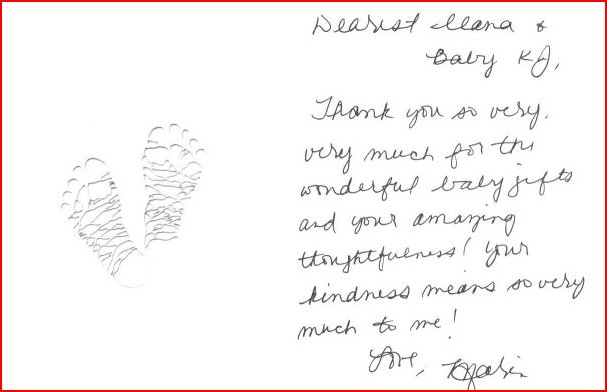 Dearest Ilana &
Baby KJ,
Thank you so very,
very much for the
wonderful baby gifts
and your amazing
thoughtfulness! Your
kindness means so very
much to me!
Love,